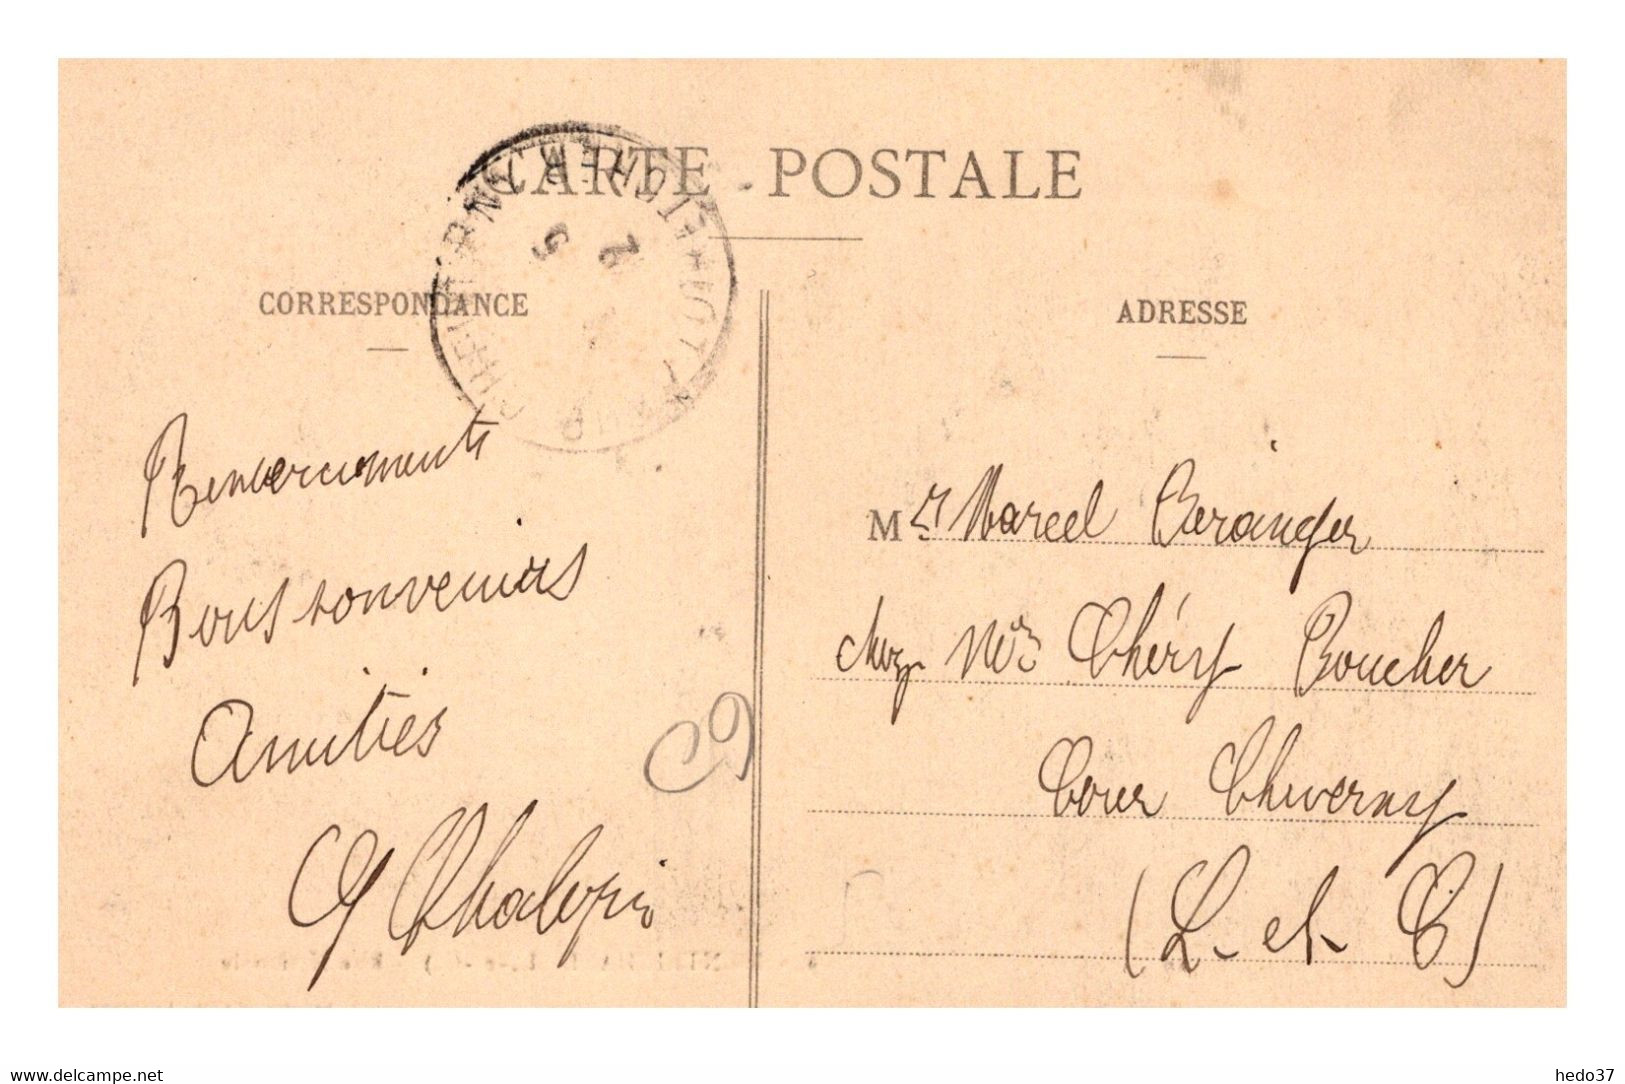 CARTE - POSTALE
CORRESPONDANCE
ADRESSE
Remerciements
Bons souvenirs
Amitiés
G Chalopin
Mr Marcel Beranger
chez Mr Théry Boucher
Cour Cheverny
(L-et-C)
C9
www.delcampe.net
hedo37